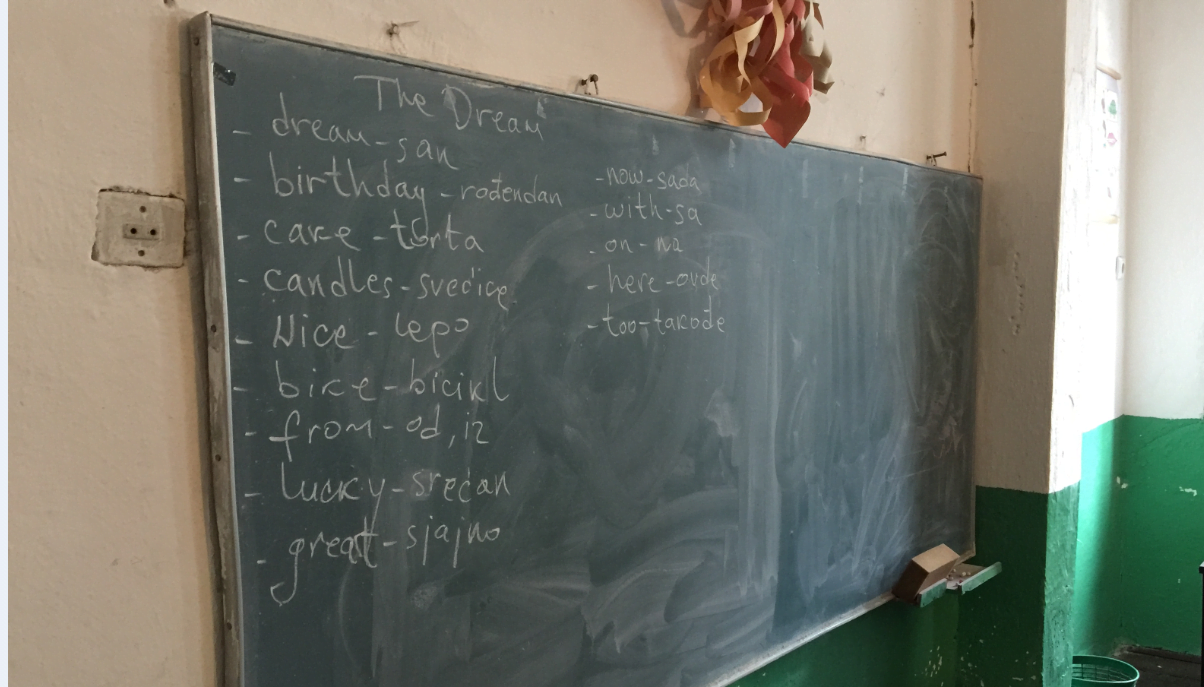 The Dream
- dream - san
- birthday - rođendan
- cake - torta
- candles - svećice
- Nice - lepo
- bike - bicikl
- from - od, iz
- lucky - srećan
- great - sjajno
- now - sada
- with - sa
- on - na
- here - ovde
- too - takođe